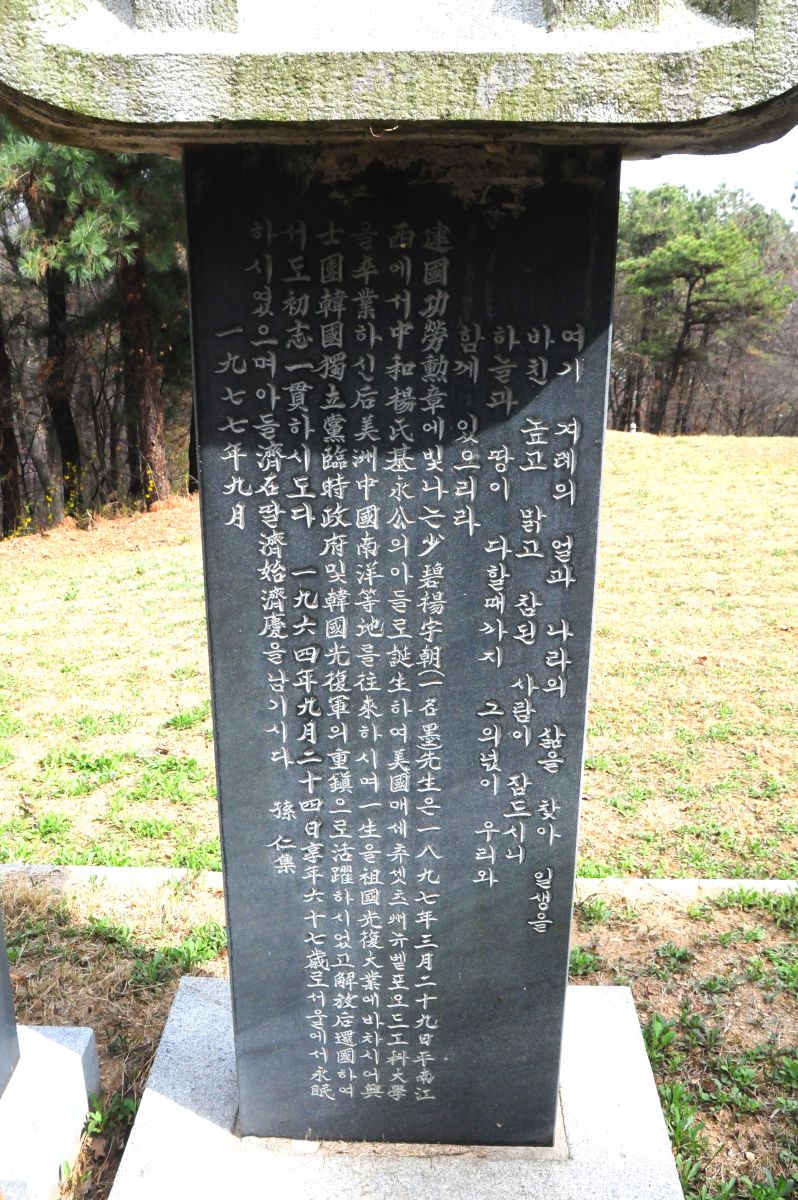 여기 겨레의 얼과 나라의 삶을 찾아 일생을
바친 높고 맑고 참된 사람이 잠드시니
하늘과 땅이 다할때까지 그의넋이 우리와
함께 있으리라
建國功勞勳章에빛나는少碧楊宇朝(一名墨)先生은一八九七年三月二十九日平南江
西에서中和楊氏基永公의아들로誕生하여美國매세츄셋츠州뉴벨포오드工科大學
을卒業하신后美洲中國南洋等地를往來하시며一生을祖國光復大業에바치시어興
士團韓國獨立黨臨時政府및韓國光復軍의重鎭으로活躍하시었고解放后還國하여
서도初志一貫하시도다 一九六四年九月二十四日享年六十七歲로서울에서永眠
하시였으며아들濟石딸濟始濟慶을남기시다 孫仁集
一九七七年九月